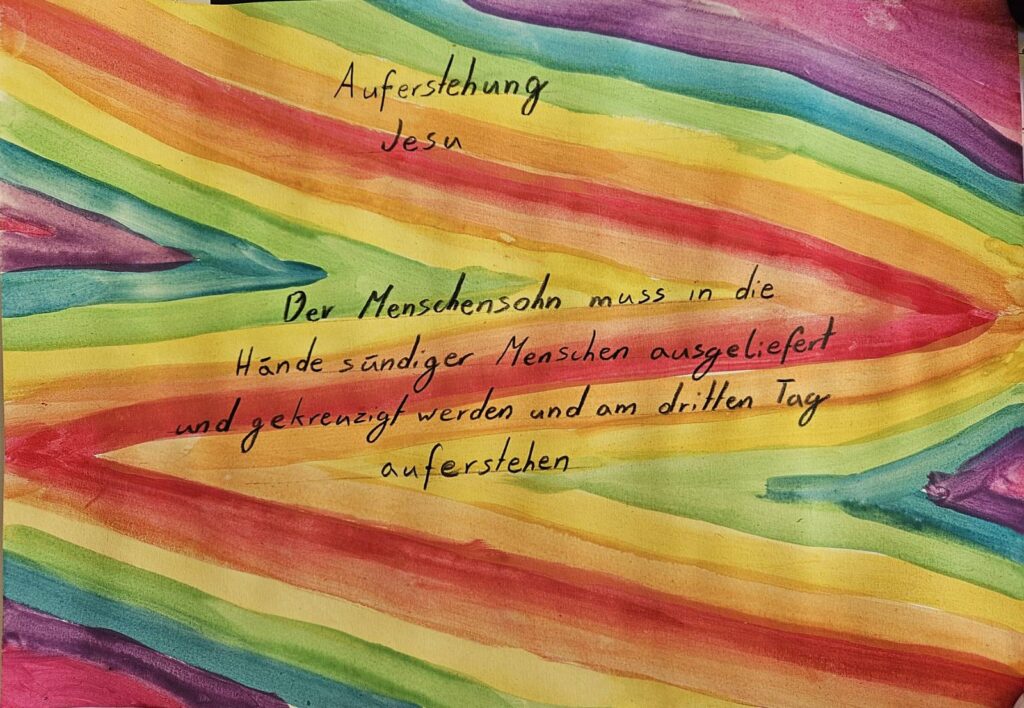 Auferstehung
Jesu
Der Menschensohn muss in die
Hände sündiger Menschen ausgeliefert
und gekreuzigt werden und am dritten Tag
auferstehen